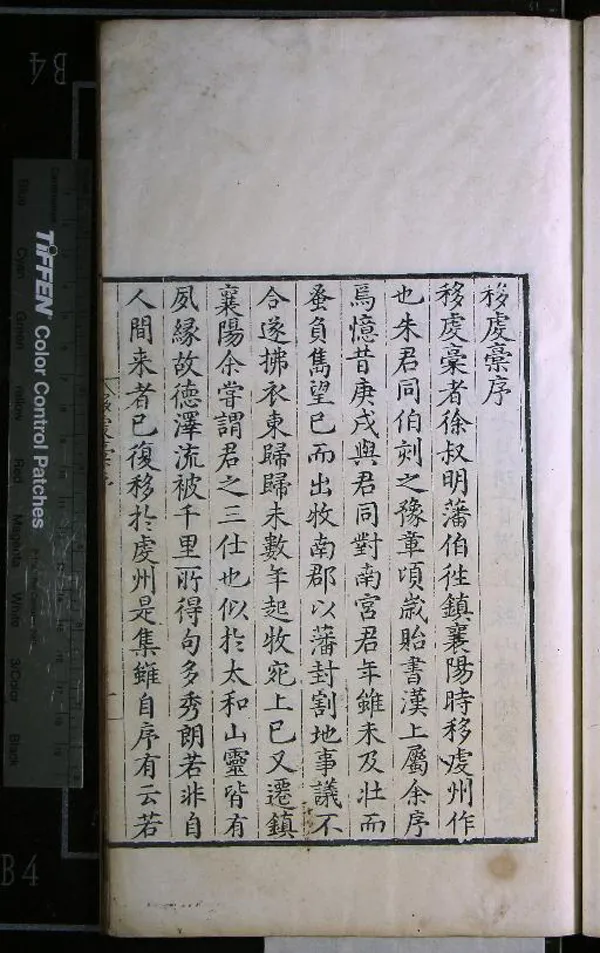 移虔稾序
移虔稾者徐叔明藩伯徃鎮襄陽時移虔州作
也朱君同伯刻之豫章頃歲貽書漢上屬余序
焉憶昔庚戌與君同對南宮君年雖未及壯而
蚤負雋望已而出牧南郡以藩封割地事議不
合遂拂衣東歸歸未數年起牧宛上已又遷鎮
襄陽余嘗謂君之三仕也似於太和山靈皆有
夙緣故德澤流被千里所得句多秀朗若非自
人間来者已復移於虔州是集雖自序有云若
移虔稾序
一
B4
TIFFEN Color Control Patches
Blue
Cyan
Green
Yellow
Red
Magenta
White
3/Color
Black
B4